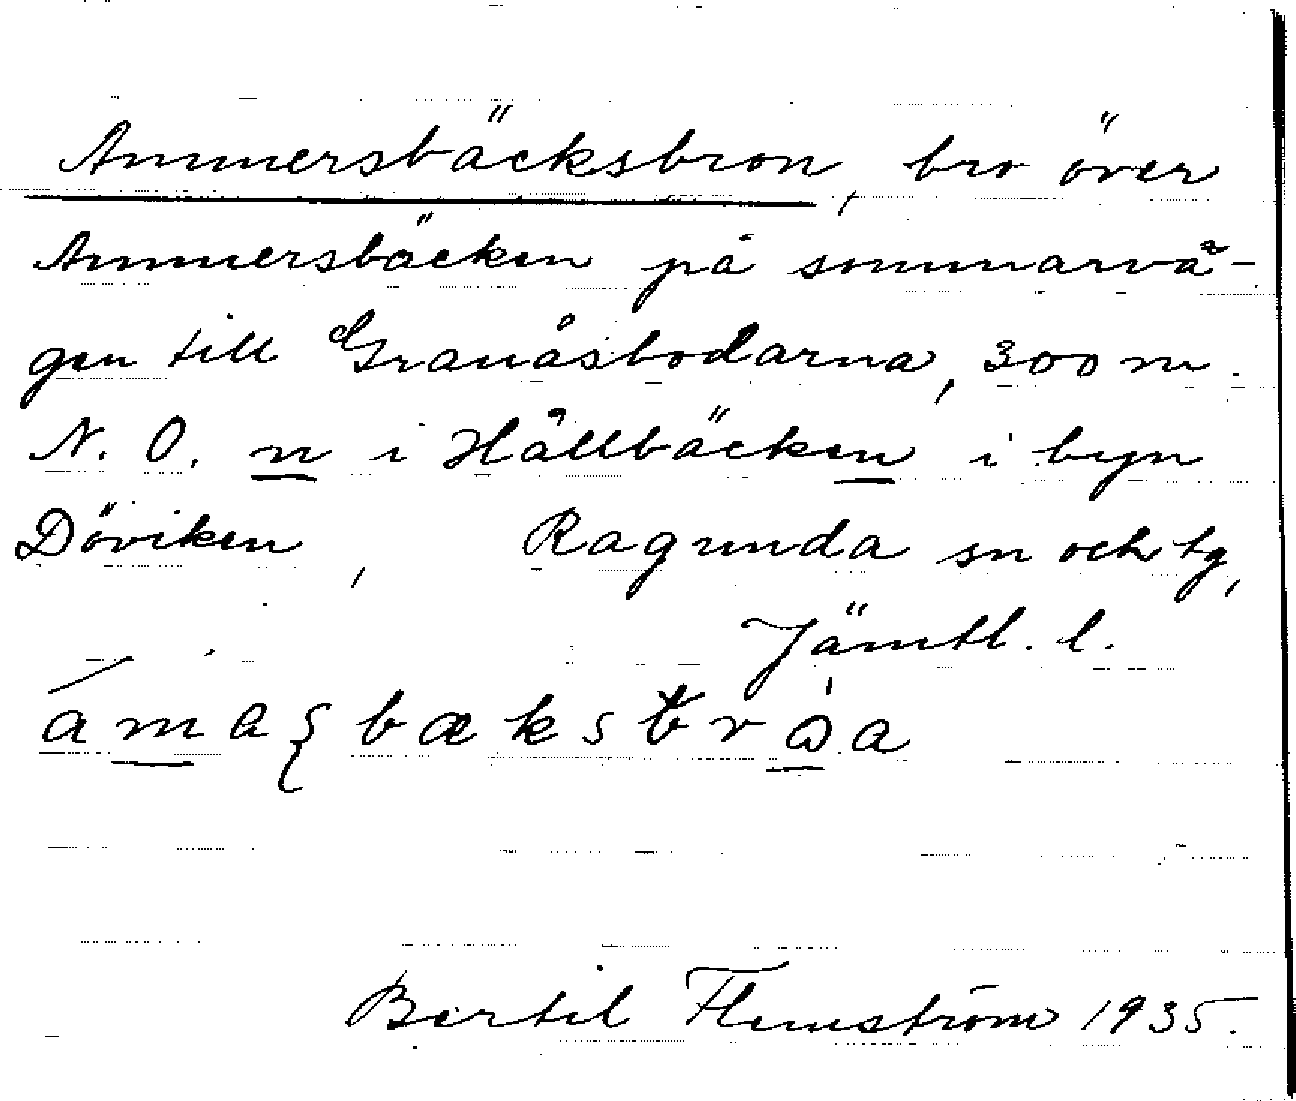 Ammersbäcksbron, bro över
Ammersbäcken på sommarvä-
gen till Granåsbodarna, 300 m
N. O. n i Hällbäcken i byn
Döviken, Ragunda sn och tg,
Jämtl. l.
Bertil Flemström 1935.